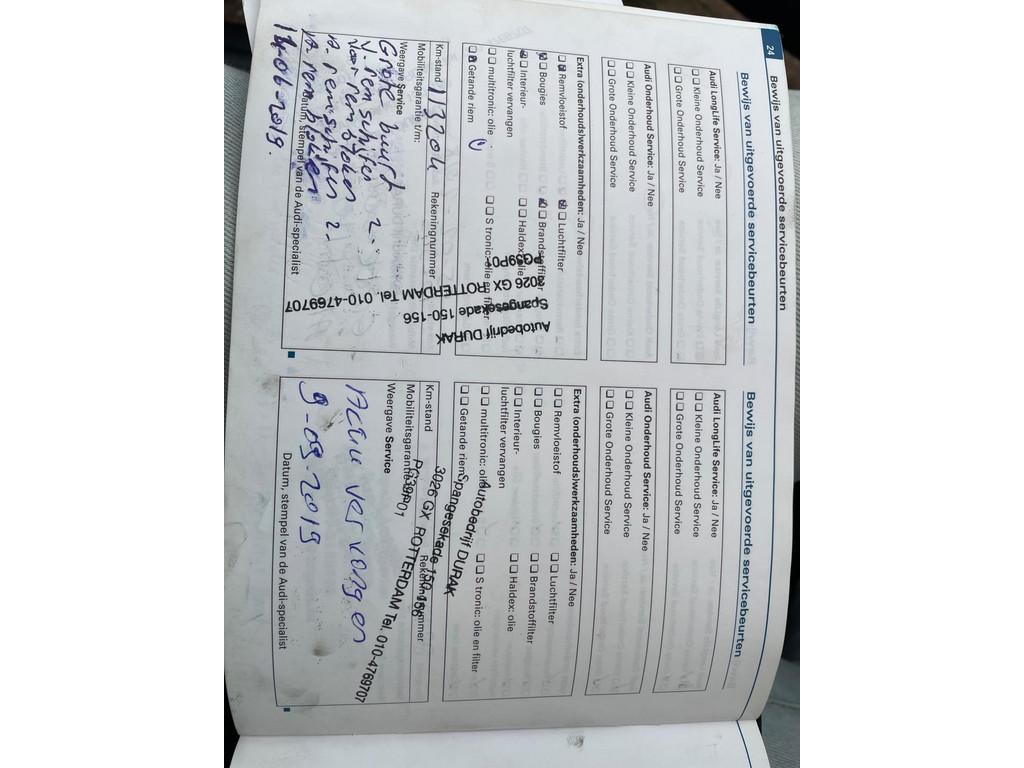 24
Bewijs van uitgevoerde servicebeurten
Bewijs van uitgevoerde servicebeurten
Audi LongLife Service: Ja / Nee
Kleine Onderhoud Service
Grote Onderhoud Service
Audi Onderhoud Service: Ja / Nee
Kleine Onderhoud Service
Grote Onderhoud Service
Extra (onderhouds)werkzaamheden: Ja / Nee
Remvloeistof
Luchtfilter
Bougies
Brandstoffilter
Interieur-
luchtfilter vervangen
Haldex: olie
multitronic: olie
S tronic: olie en filter
Getande riem
Autobedrijf DURAK
Spangesekade 150-156
3026 GX ROTTERDAM Tel. 010-4769707
PG39P01
Km-stand 113204
Rekeningnummer
Mobiliteitsgarantie t/m:
Weergave Service
Grote buurt
V. rem schijfen 2.
voor remblokken
A. rem schijfen 2.
A. rem blokken
14-06-2019.
Datum, stempel van de Audi-specialist
Bewijs van uitgevoerde servicebeurten
Audi LongLife Service: Ja / Nee
Kleine Onderhoud Service
Grote Onderhoud Service
Audi Onderhoud Service: Ja / Nee
Kleine Onderhoud Service
Grote Onderhoud Service
Extra (onderhouds)werkzaamheden: Ja / Nee
Remvloeistof
Luchtfilter
Bougies
Brandstoffilter
Interieur-
luchtfilter vervangen
Haldex: olie
multitronic: olie
S tronic: olie en filter
Getande riem
Autobedrijf DURAK
Spangesekade 150-156
3026 GX ROTTERDAM Tel. 010-4769707
PG39P01
Km-stand
Rekeningnummer
Mobiliteitsgarantie t/m:
Weergave Service
Accu vervangen
9-09-2019
Datum, stempel van de Audi-specialist